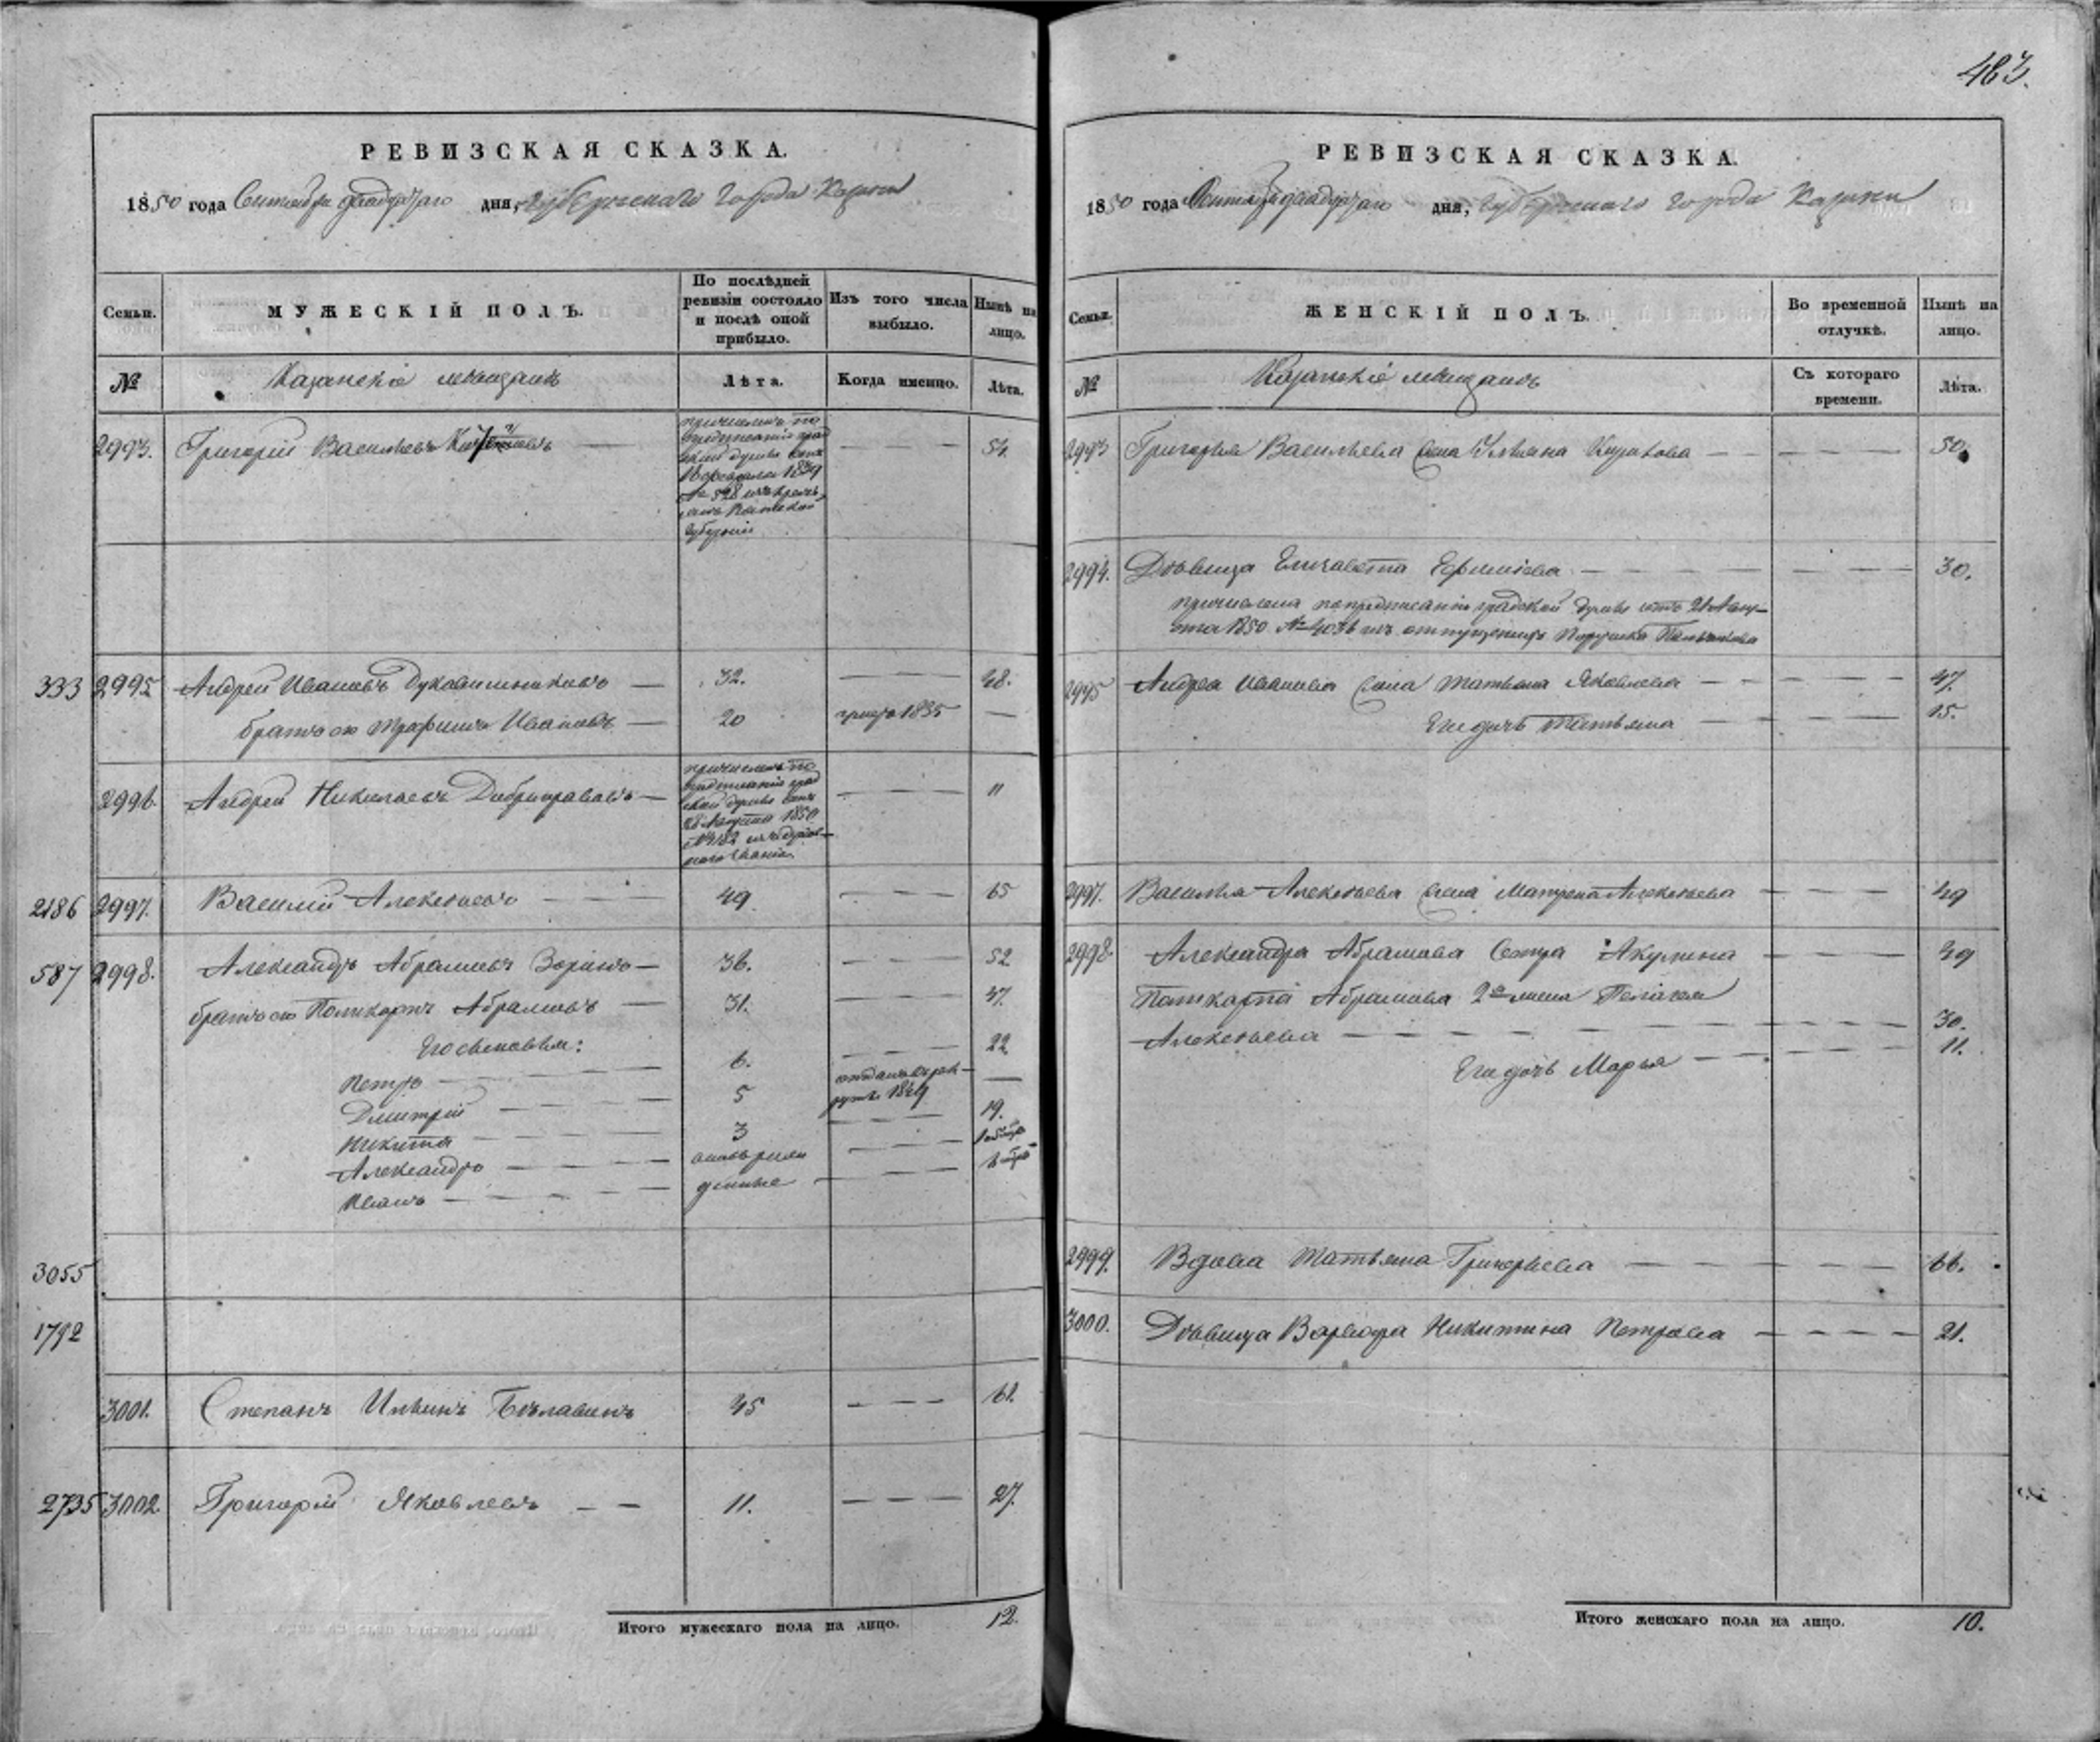 483.
РЕВИЗСКАЯ СКАЗКА.
1850 года Сентября двадцатаго дня, Губернскаго города Казани
Семьи. МУЖЕСКІЙ ПОЛЪ. По послѣдней ревизіи состояло и послѣ оной прибыло. Изъ того числа выбыло. Нынѣ на лицо.
№ Казанскіе мѣщане Лѣта. Когда именно. Лѣта.
2993. Григорій Васильевъ — — — — 54.
причисленъ по
предписанію град
ской думы
1839
№ 528 изъ
Вятской
губерніи
333 2995 Андрей Ивановъ Духовишниковъ — 32. — — — 48.
братъ его Трофимъ Ивановъ — 20 умеръ 1835 —
2996. Андрей Николаевъ Добронравовъ — — — — 11
причисленъ по
предписанію град
ской думы отъ
28 Августа 1850
№ 4182 изъ духов-
наго званія.
2186 2997. Василій Алексѣевъ — — — 49 — — — 65
587 2998. Александръ Абрамовъ Зоринъ — 36. — — — 52
братъ его Поликарпъ Абрамовъ — 31. — — — 47.
Его сыновья:
Петръ — — — 6. — — — 22
Дмитрій — — — 5 отданъ въ рек-
руты 1849 —
Никита — — — 3 — — — 19.
Александръ — — — послѣ реви — — —
Иванъ — — — — — — —
3055
1792
3001. Степанъ Ильинъ Бѣлавинъ 45 — — — 61.
2735 3002. Григорій Яковлевъ — — 11. — — — 27.
Итого мужескаго пола на лицо. 12.
РЕВИЗСКАЯ СКАЗКА.
1850 года Сентября двадцатаго дня, Губернскаго города Казани
Семьи. ЖЕНСКІЙ ПОЛЪ. Во временной отлучкѣ. Нынѣ на лицо.
№ Казанскіе мѣщане Съ котораго времени. Лѣта.
2993 Григорья Васильева жена Ульяна — — — — 50.
2994. Дѣвица Елизавета Ефимова — — — — 30.
причислена по предписанію градской думы отъ 21 Авгу-
ста 1850 № 4036 изъ отпущенныхъ
2995 Андрея Иванова жена Татьяна Яковлева — — — — 47.
Его дочь Татьяна — — — — 15.
2997. Василья Алексѣева жена Матрена Алексѣева — — — — 49
2998. Александра Абрамова сестра Акулина — — — — 49
Поликарпа Абрамова 2я жена Пелагея
Алексѣева — — — — 30.
Его дочь Марья — — — — 11.
2999. Вдова Татьяна Григорьева — — — — 66.
3000. Дѣвица Варвара Никитина Петрова — — — — 21.
Итого женскаго пола на лицо. 10.